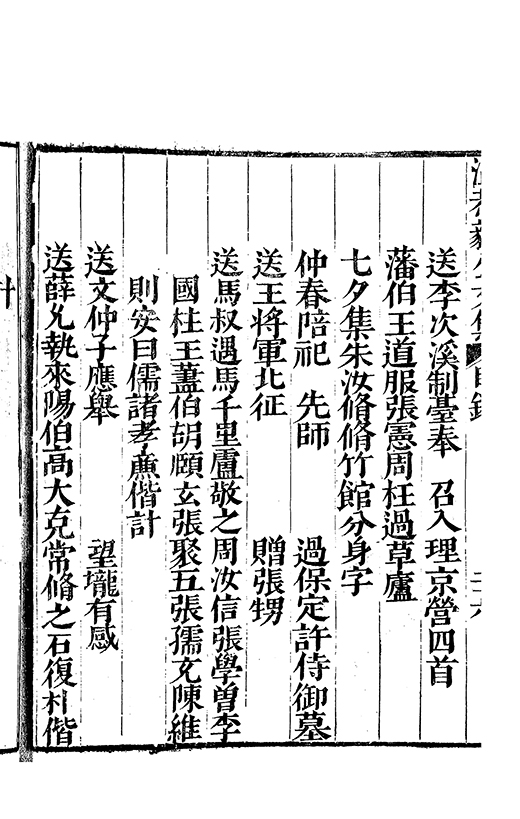 目錄
送李次溪制臺奉　召入理京營四首
藩伯王道服張憲周枉過草廬
七夕集朱汝脩脩竹館分身字
仲春陪祀　先師　過保定許侍御墓
送王將軍北征　贈張甥
送馬叔遇馬千里盧敬之周汝信張學曾李
國柱王藎伯胡頤玄張聚五張孺文陳維
則安曰儒諸孝廉偕計
送文仲子應舉　望壠有感
送薛兄執來陽伯高大克常脩之石復朴偕
計